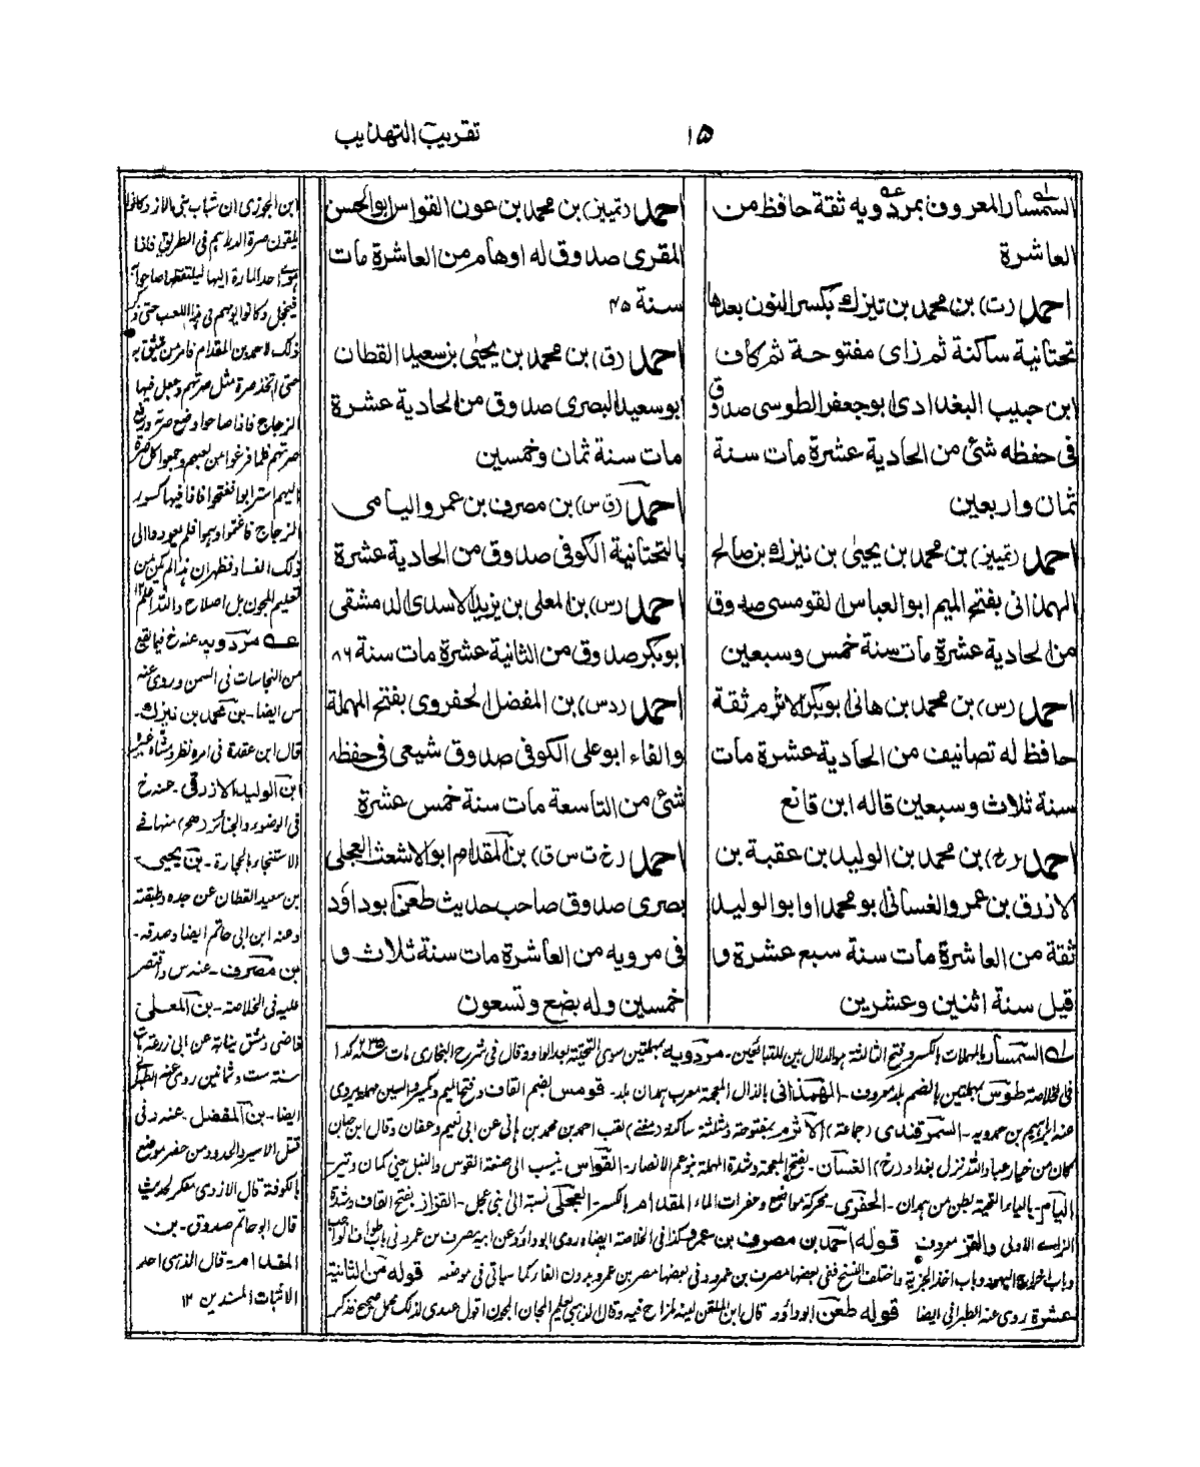 ۱۵
تقريب التهذيب
السمسار المعروف بمردويه ثقة حافظ من
العاشرة
احمد (ت) بن محمد بن نيزك بكسر النون بعدها
تحتانية ساكنة ثم زاى مفتوحة ثم كاف
ابن حبيب البغدادى ابو جعفر الطوسى صدوق
فى حفظه شئ من الحادية عشرة مات سنة
ثمان واربعين
احمد (تمييز) بن محمد بن يحيى بن نيزك بن صالح
الهمذانى بفتح الميم ابو العباس القومسى صدوق
من الحادية عشرة مات سنة خمس وسبعين
احمد (س) بن محمد بن هانئ ابو بكر الاثرم ثقة
حافظ له تصانيف من الحادية عشرة مات
سنة ثلاث وسبعين قاله ابن قانع
احمد (خ) بن محمد بن الوليد بن عقبة بن
الازرق بن عمرو الغسانى ابو محمد او ابو الوليد
ثقة من العاشرة مات سنة سبع عشرة و
قيل سنة اثنين وعشرين
احمد (تمييز) بن محمد بن عون القواس ابو الحسن
المقرى صدوق له اوهام من العاشرة مات
سنة ۴۵
احمد (ق) بن محمد بن يحيى بن سعيد القطان
ابو سعيد البصرى صدوق من الحادية عشرة
مات سنة ثمان وخمسين
احمد (ق س) بن مصرف بن عمرو اليامى
بالتحتانية الكوفى صدوق من الحادية عشرة
احمد (س) بن المعلى بن يزيد الاسدى الدمشقى
ابو بكر صدوق من الثانية عشرة مات سنة ۸۶
احمد (د س) بن المفضل الحفروى بفتح المهملة
والفاء ابو على الكوفى صدوق شيعى فى حفظه
شئ من التاسعة مات سنة خمس عشرة
احمد (خ ت س ق) بن المقدام ابو الاشعث العجلى
بصرى صدوق صاحب حديث طعن ابو داؤد
فى مرويه من العاشرة مات سنة ثلاث و
خمسين وله بضع وتسعون
السمسار بالمهملات بالكسر وفتح الثالثة هو الدلال بين المتبائعين - مردويه بمهملتين سوى التحتية بعد الواو وقال فى شرح البخارى مات ۲۳۵ كذا
فى الخلاصة طوس بمهملتين بالضم بلد معروف - الهمذانى بالذال المعجمة معرب همدان بلد - قومس بضم القاف وفتح الميم وبكسر والسين مهملة يروى
عنه ابراهيم بن حمدويه - السمرقندى (جماعة) الاثرم بمفتوحة ومثلثة ساكنة لقب احمد بن محمد بن هانى عن ابى نعيم وعفان وقال ابن حبان
كان من خيار عباد الله نزل بغداد (خ) الغسانى - بفتح المعجمة وشدة المهملة نوع من الانصار - القواس ينسب الى صنعة القوس والنبل
اليامى - بالياء التحتية بطن من همدان - الحفرى - محركة مواضع وحفرات الماء المقدام بالكسر - العجلى نسبة الى بنى عجل - القزاز بفتح القاف وشدة
الزاى الاولى والقز معروف قوله احمد بن مصرف بن عمرو كذا فى الخلاصة ايضا وروى ابو داؤد عن ابيه مصرف بن عمرو فى
وباب اخراج اليهود وباب اخذ الجزية واختلف النسخ ففى بعضها مصرف بن عمرو وفى بعضها مصر بن عمرو بدون الفاء كما سياتى فى موضعه قوله من الثانية
عشرة روى عنه الطبرانى ايضا قوله طعن ابو داؤد قال ابن الملقن لينه لمزاح فيه وكان الذهبى يعلم المجان المجون اقول عندى لذلك محمل صحيح فذكر
ابن الجوزى ان شباب بنى الازد كانوا
يلقون صرة الدراهم فى الطريق فاذا
احد المارة اليها ليلتقطها صاحوا به
فيخجل وكانوا يؤذيهم فى هذا اللعب حتى ذكر
ذلك لاحمد بن المقدام
حتى اتخذ صرة مثل صرتهم وجعل فيها
الزجاج فاذا صاحوا وضع صرته ورفع
صرتهم فلما فرغوا من لعبهم وجمعوا كل صرة
اليهم استرابوا ففتحوا فاذا فيها كسور
الزجاج فاغتموا فلم يعودوا الى
ذلك الفساد فظهر ان هذا لم يكن من
تعليم المجون بل اصلاح والله اعلم ۱۲
عه مردويه عنه خ فيما يقع
من النجاسات فى السمن وروى عنه
س ايضا - بن محمد بن نيزك -
قال ابن عقدة فى امره نظر ومشاه غيره
ابن الوليد الازرقى - عنه خ
فى الوضوء والجنائز (وهم) منها فى
الاستنجاء بالحجارة - بن يحيى
ابن سعيد القطان عن جده وطبقته
وعنه ابن ابى حاتم ايضا وصدقه -
بن مصرف - عنه س واقتصر
عليه فى الخلاصة - بن المعلى
قاضى دمشق نيابة عن ابى زرعة مات
سنة ست وثمانين روى عنه الطبرانى
ايضا - بن المفضل - عنه د فى
قتل الاسير والحدود من حفر موضع
بالكوفة قال الازدى منكر الحديث
قال ابو حاتم صدوق - بن
المقدام - قال الذهبى احد
الاثبات المسندين ۱۲